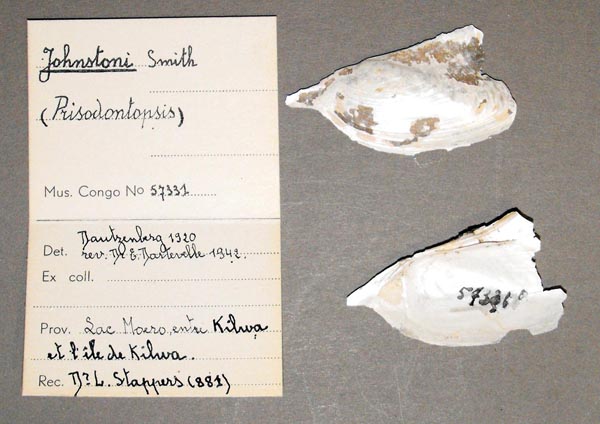 Johnstoni Smith
(Prisodontopsis)
Mus. Congo No 57331
Det. Dautzenberg 1920
rev. Dr E. Dartevelle 1942.
Ex coll.
Prov. Lac Moero, entre Kilwa
et l'île de Kilwa.
Rec. Dr L. Stappers (881)